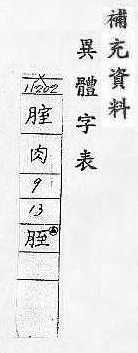 補充資料
異體字表
11202
肉
9
13
胵